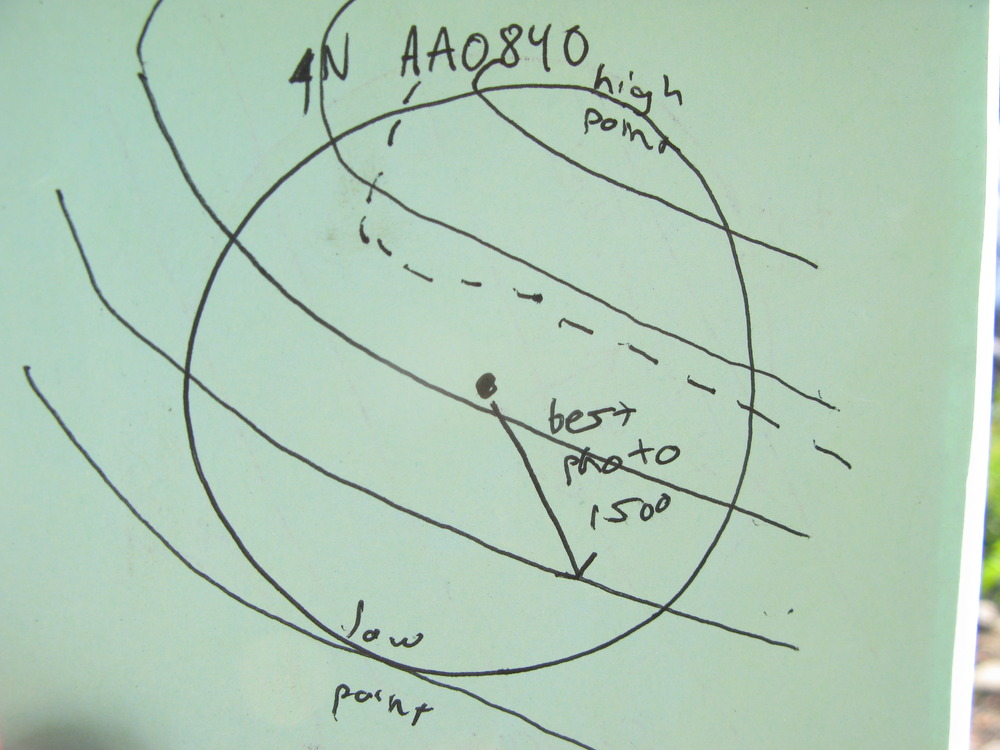 N AA0840
high
point
best
photo
1500
low
point